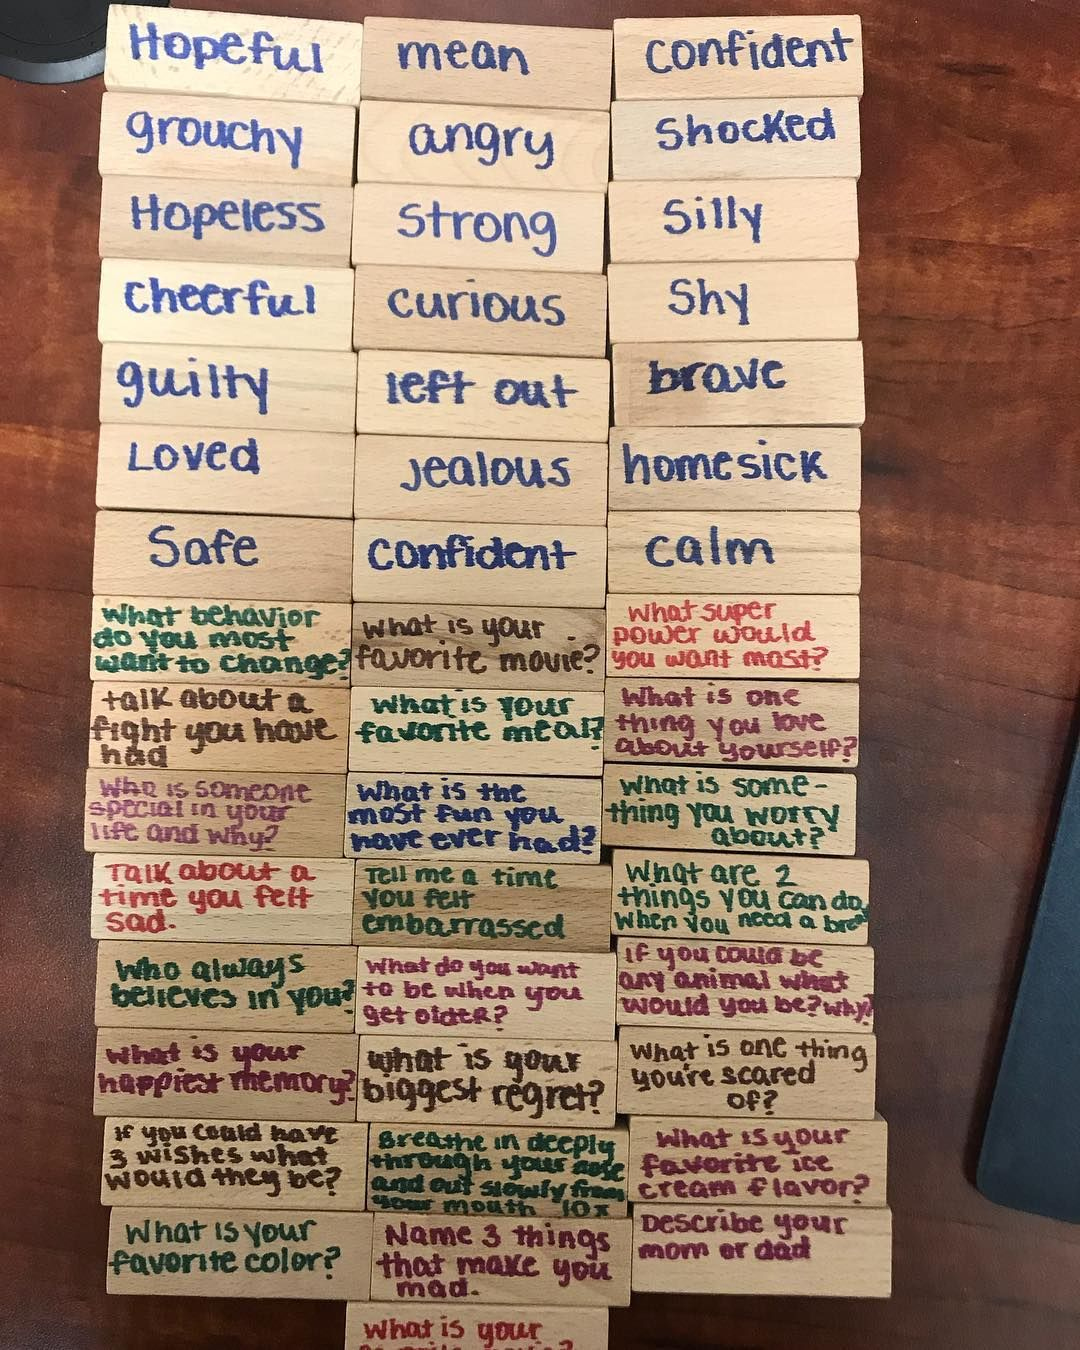 Hopeful
mean
confident
grouchy
angry
Shocked
Hopeless
Strong
Silly
cheerful
curious
Shy
guilty
left out
brave
Loved
Jealous
homesick
Safe
confident
calm
What behavior
do you most
want to change?
What is your
favorite movie?
What super
power would
you want most?
talk about a
fight you have
had
What is your
favorite meal?
What is one
thing you love
about yourself?
Who is someone
special in your
life and why?
What is the
most fun you
have ever had?
What is some-
thing you worry
about?
Talk about a
time you felt
sad.
Tell me a time
you felt
embarrassed
What are 2
things you can do
when you need a
Who always
believes in you?
What do you want
to be when you
get older?
If you could be
any animal what
would you be? why?
What is your
happiest memory?
What is your
biggest regret?
What is one thing
you're scared
of?
If you could have
3 wishes what
would they be?
Breathe in deeply
through your nose
and out slowly from
your mouth 10x
What is your
favorite ice
cream flavor?
What is your
favorite color?
Name 3 things
that make you
mad.
Describe your
mom or dad
What is your